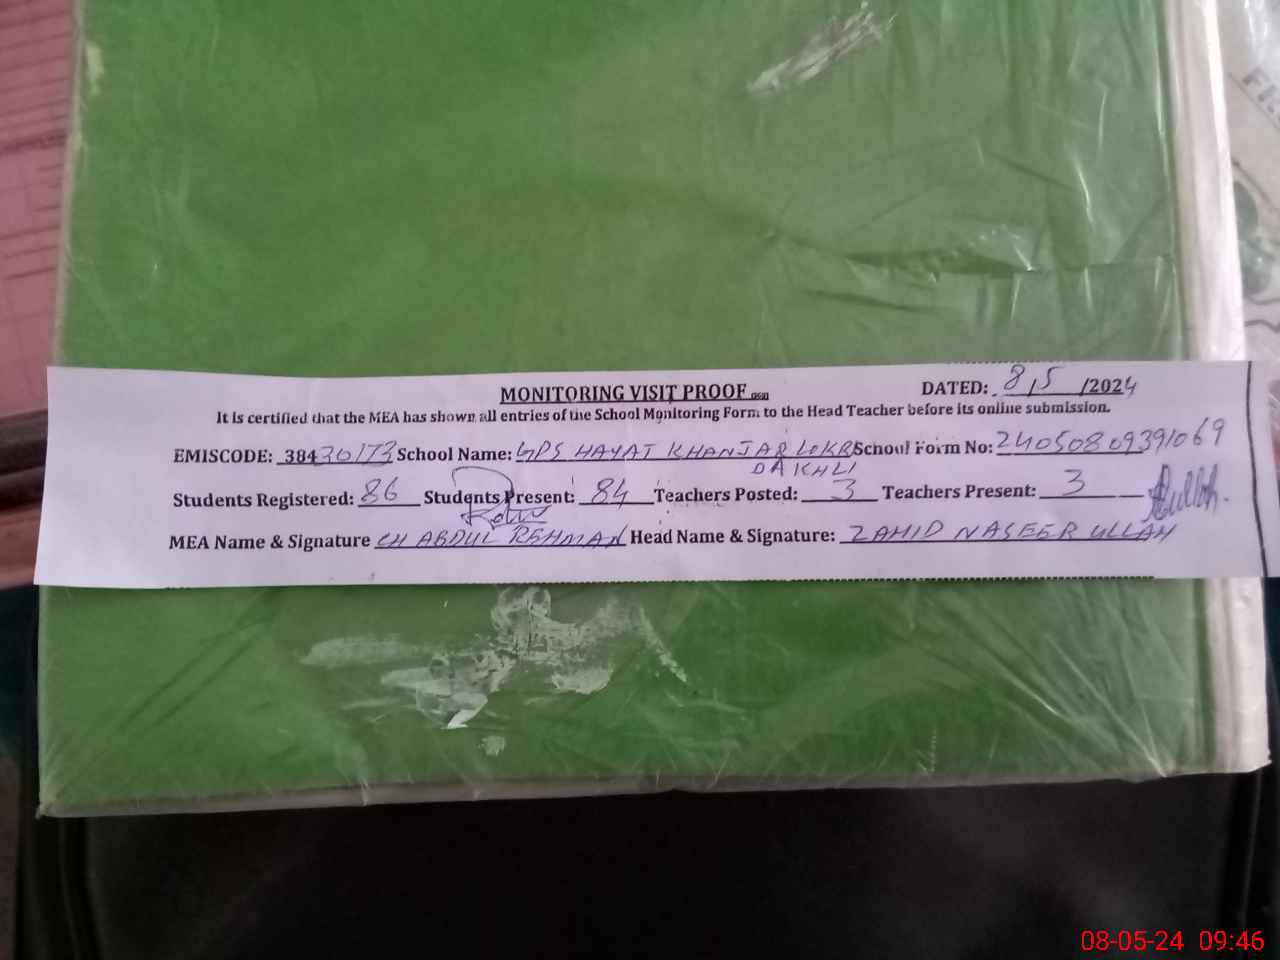 MONITORING VISIT PROOF
DATED: 8/5/2024
It is certified that the MEA has shown all entries of the School Monitoring Form to the Head Teacher before its online submission.
EMISCODE: 38430173 School Name: GPS HAYAT KHANJAR LOKRI School Form No: 24050809391069
DAKHLI
Students Registered: 86 Students Present: 84 Teachers Posted: 3 Teachers Present: 3
MEA Name & Signature CH ABDUL REHMAN Head Name & Signature: ZAHID NASEER ULLAH
08-05-24 09:46